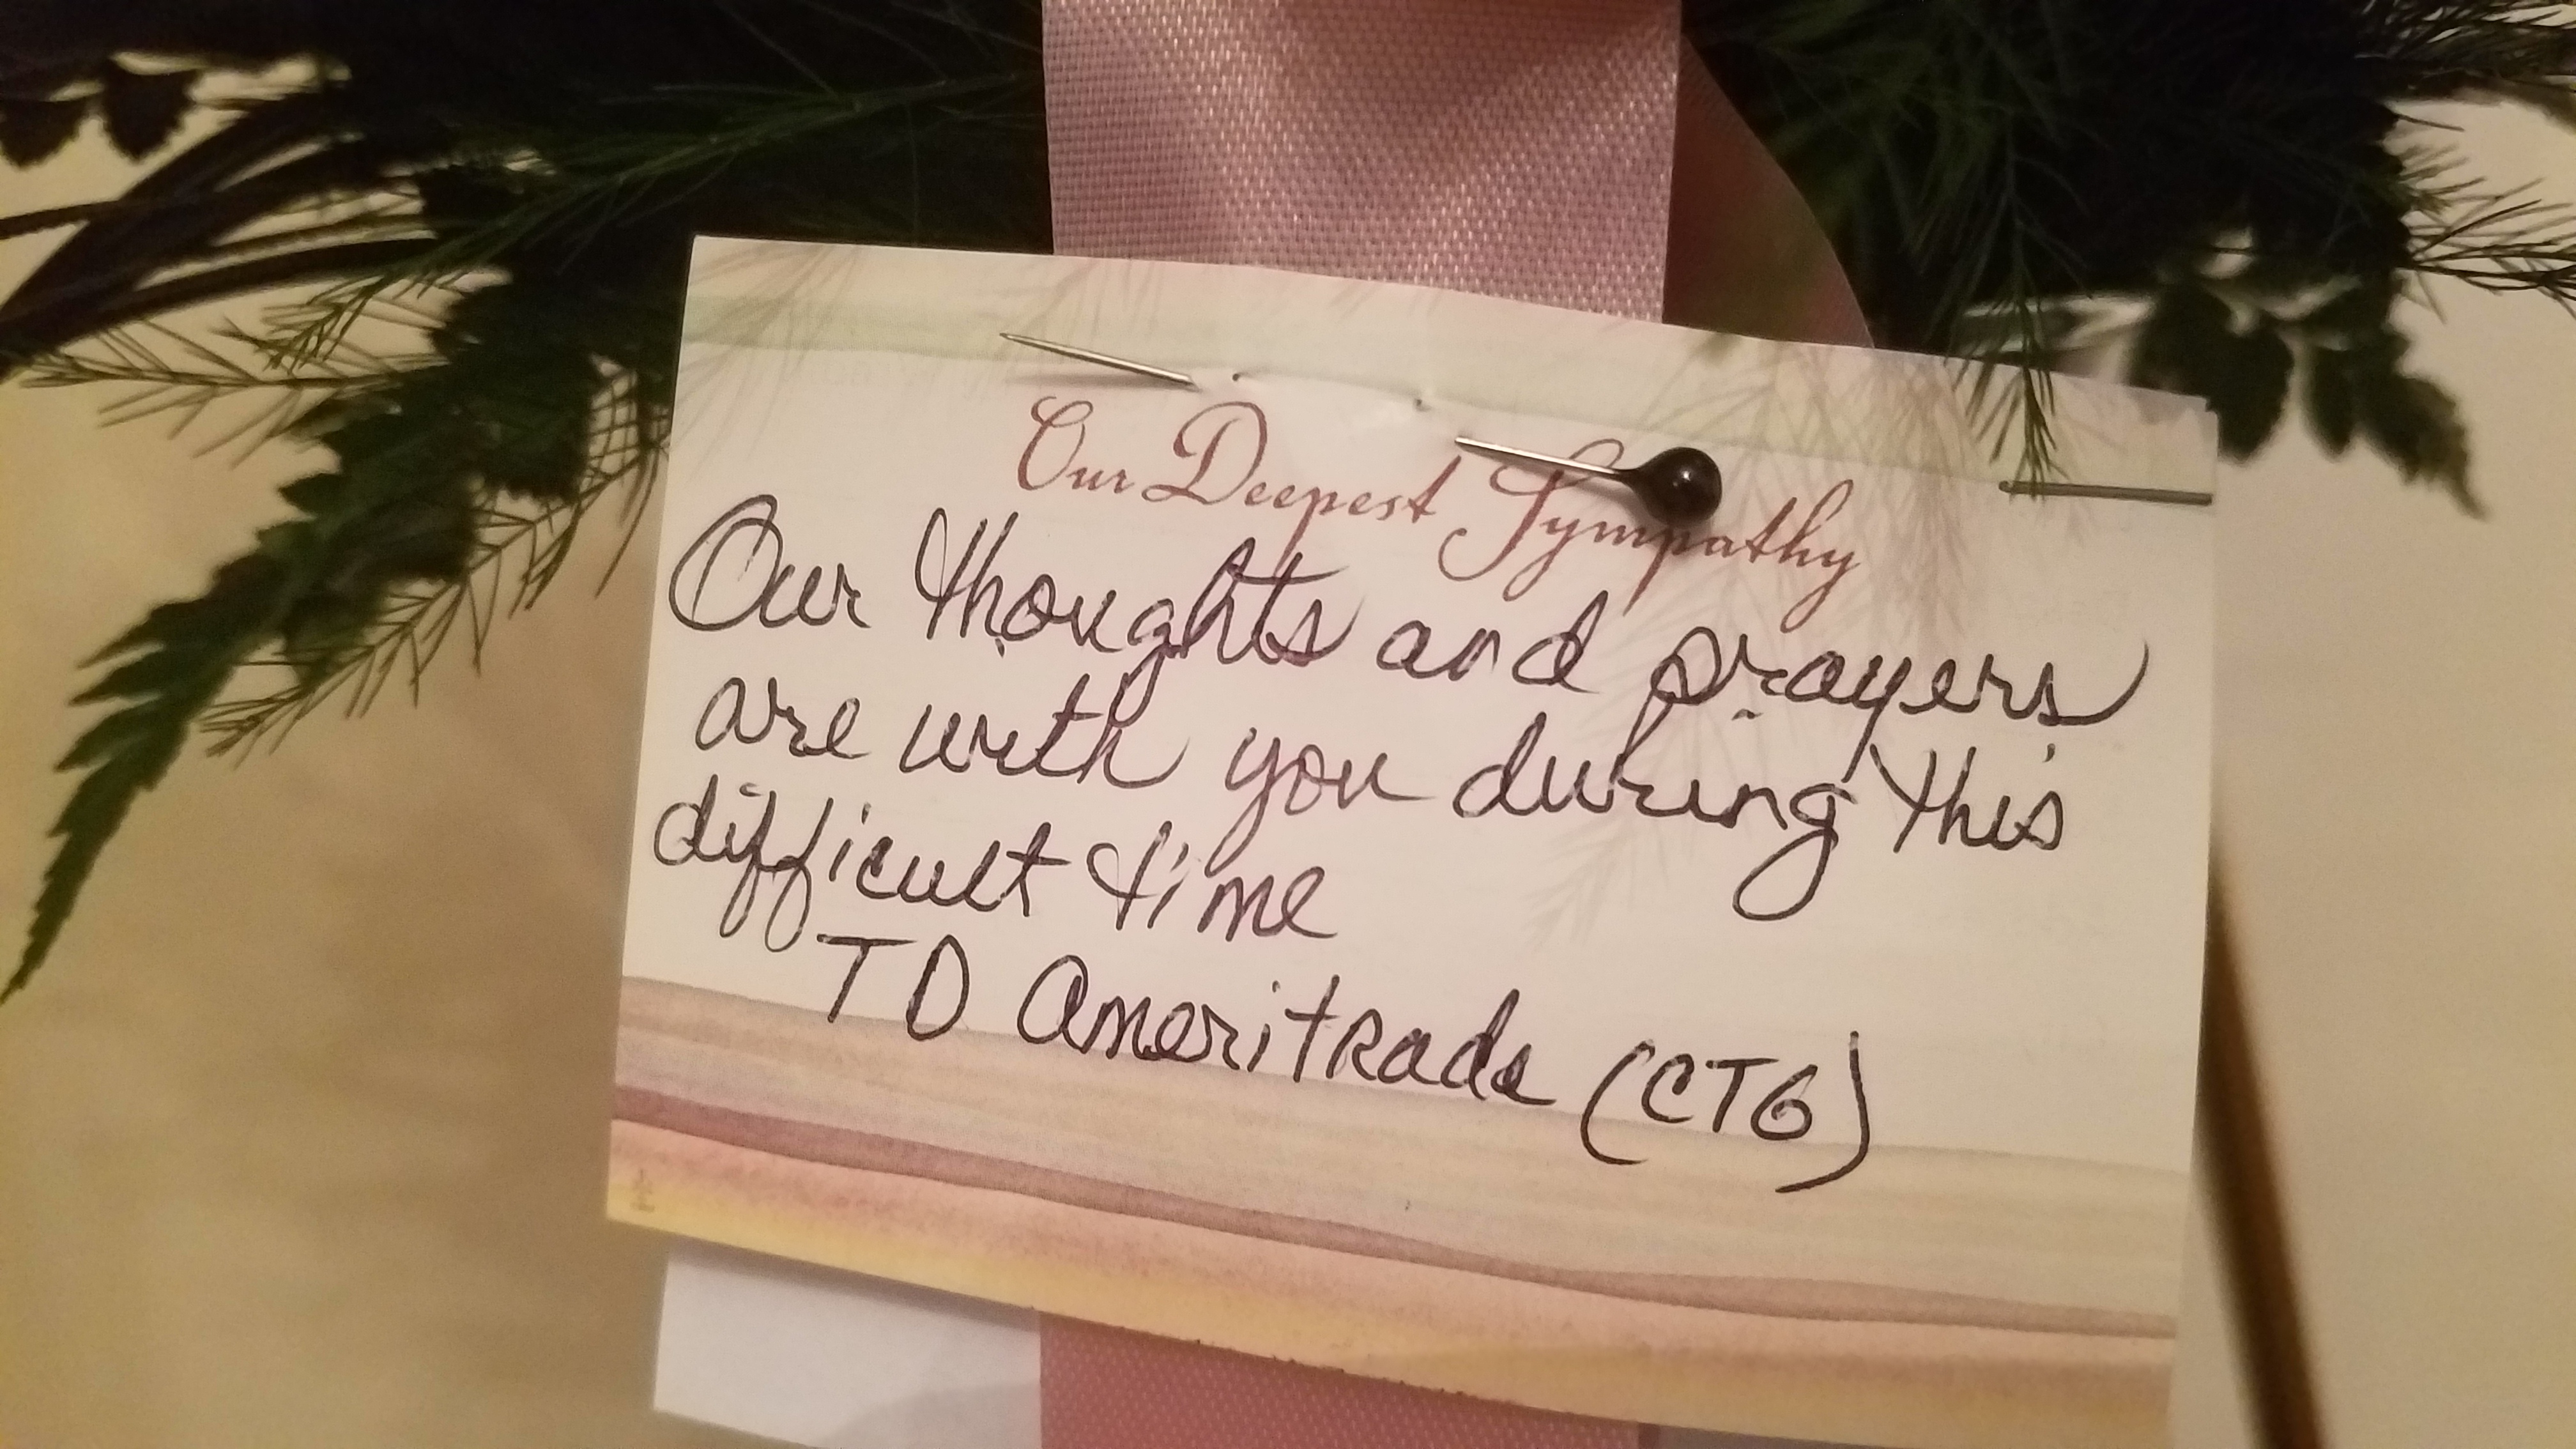 Our Deepest Sympathy
Our thoughts and prayers
are with you during this
difficult time
TD Ameritrade (CTG)